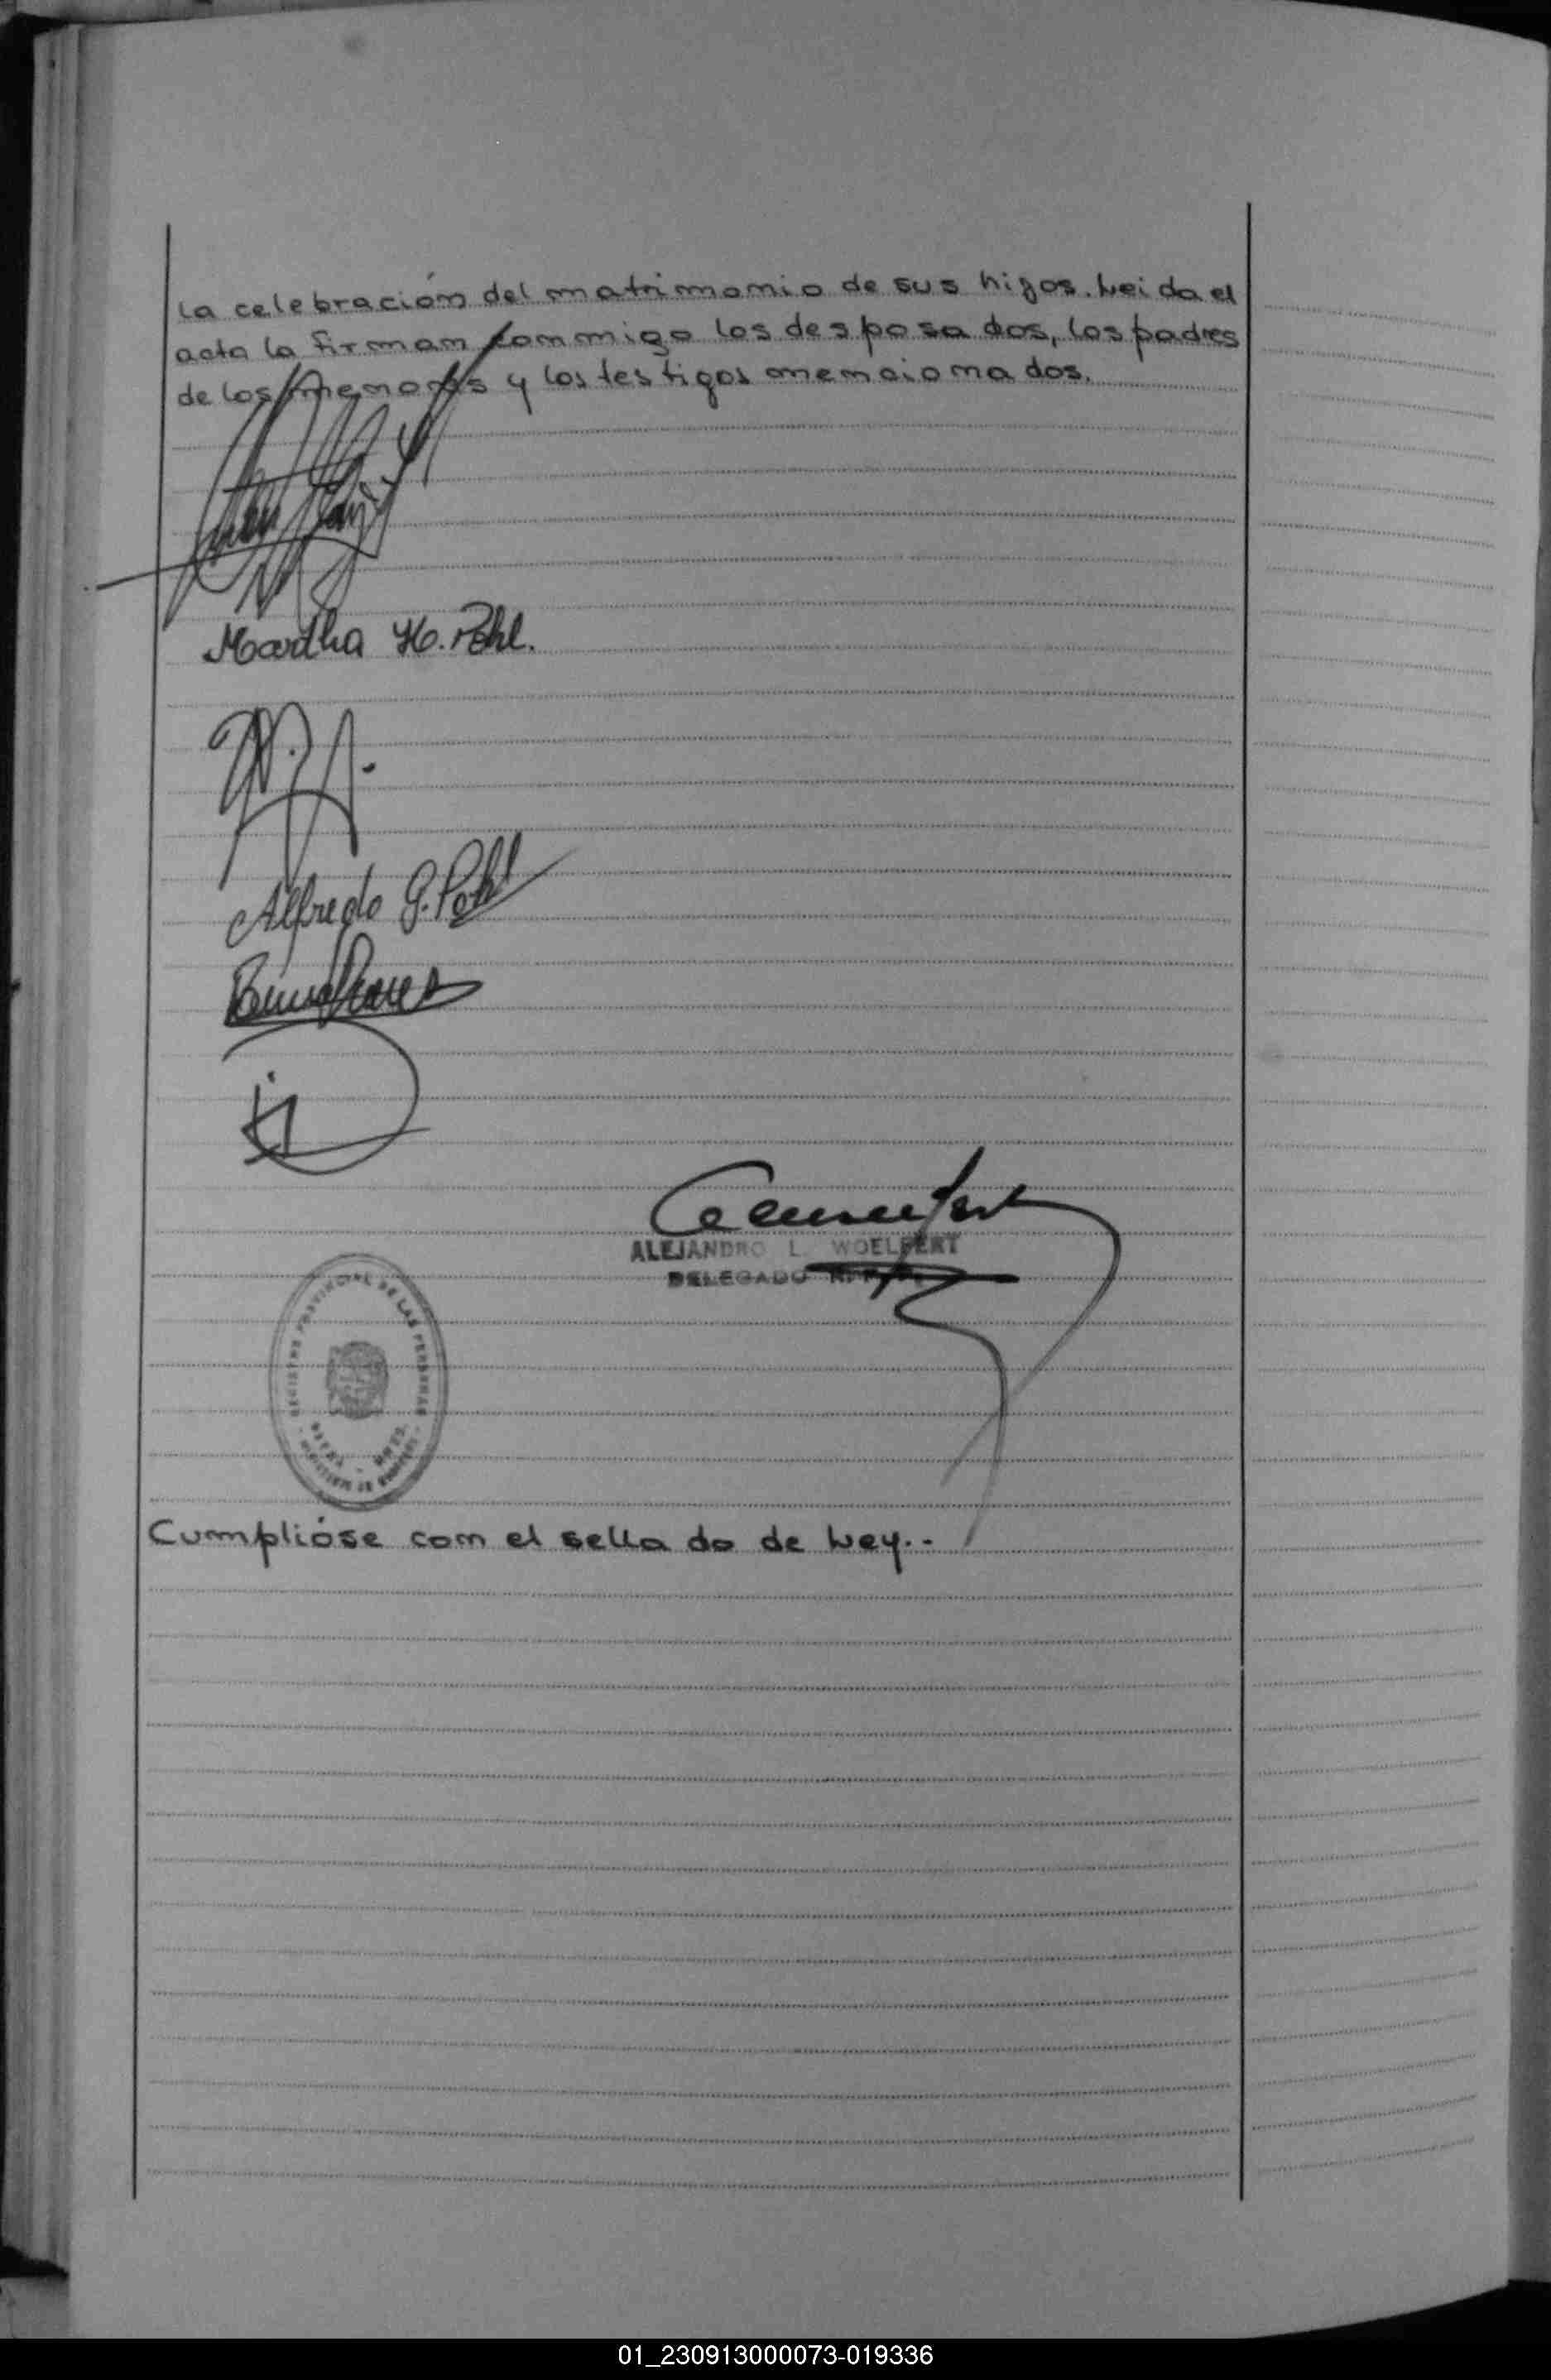 la celebración del matrimonio de sus hijos. Leida el
acta la firman conmigo los desposados, los padres
de los menores y los testigos mencionados.
Martha H. Pohl.
Alfredo G. Pohl
ALEJANDRO L. WOELFERT
DELEGADO
REGISTRO PROVINCIAL DE LAS PERSONAS
Cumplióse con el sellado de Ley.-
01_230913000073-019336